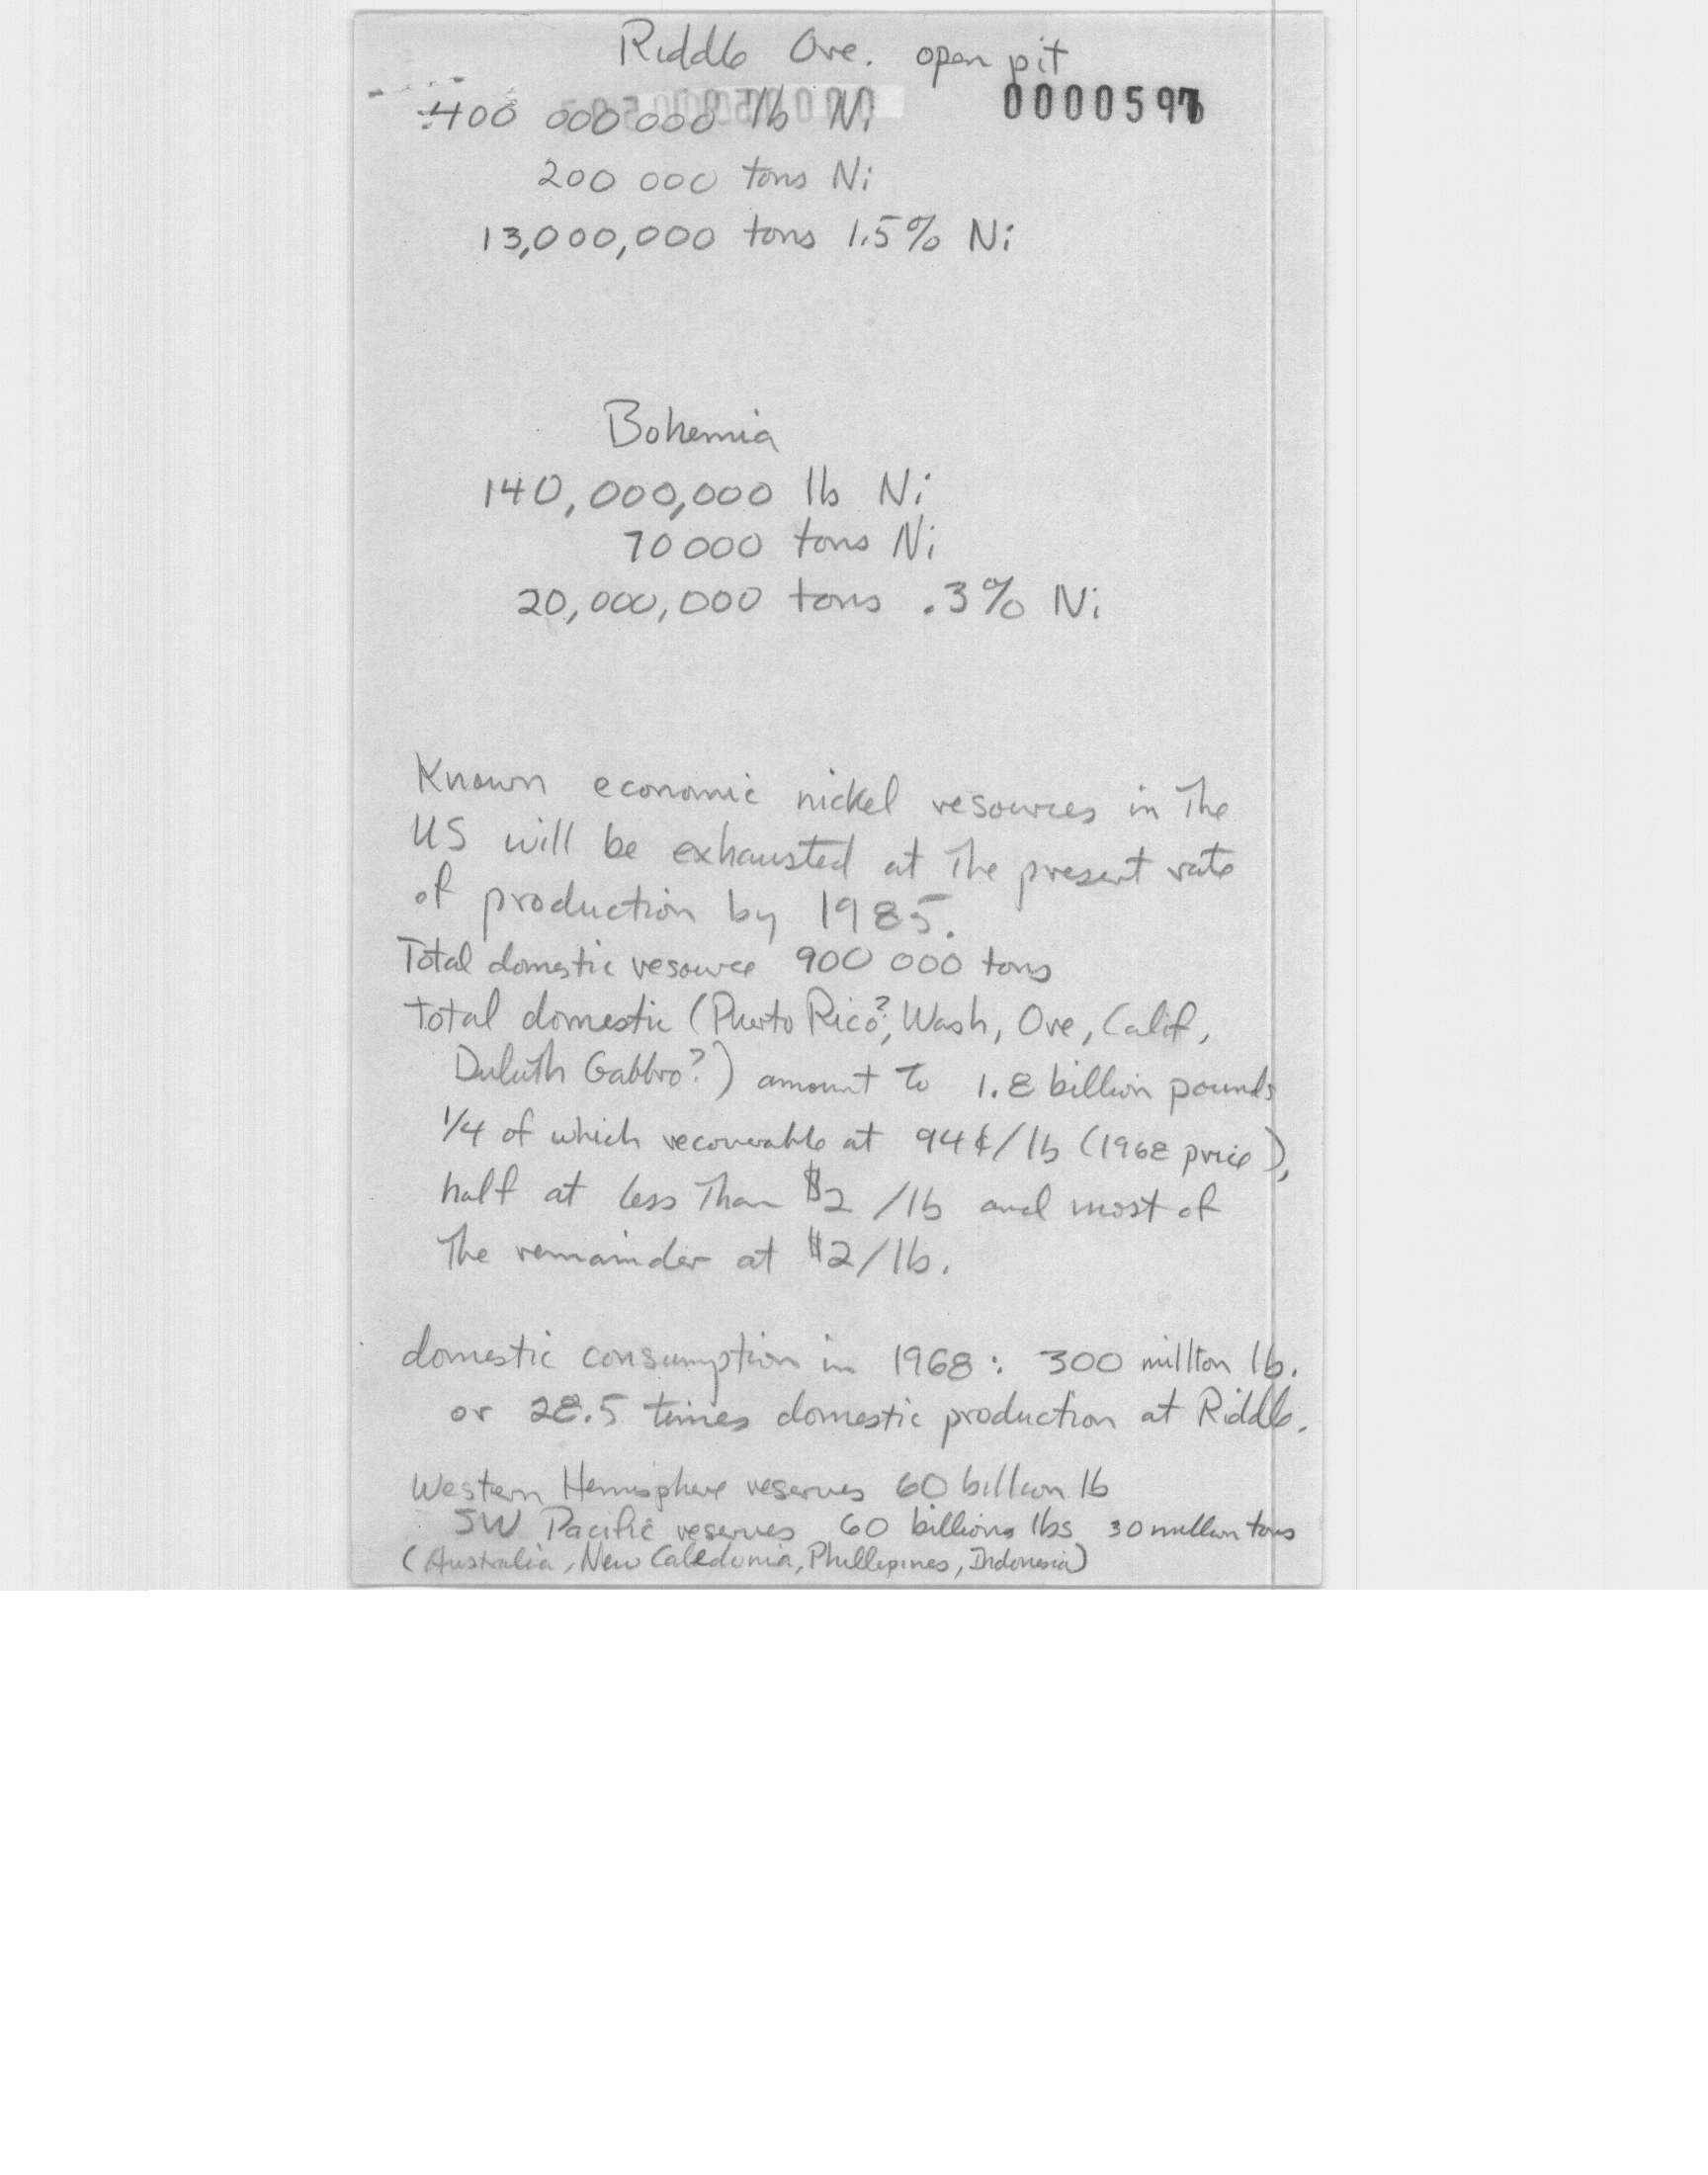 Riddle Ore. open pit
400 000 000 lb Ni
200 000 tons Ni
13,000,000 tons 1.5% Ni
Bohemia
140,000,000 lb Ni
70 000 tons Ni
20,000,000 tons .3% Ni
Known economic nickel resources in the
US will be exhausted at the present rate
of production by 1985.
Total domestic resource 900 000 tons
total domestic (Puerto Rico?, Wash, Ore, Calif,
Duluth Gabbro?) amount to 1.8 billion pounds
1/4 of which recoverable at 94¢/lb (1968 price),
half at less than $2/lb and most of
the remainder at $2/lb.
domestic consumption in 1968: 300 million lb.
or 28.5 times domestic production at Riddle.
Western Hemisphere reserves 60 billion lb
SW Pacific reserves 60 billions lbs 30 million tons
(Australia, New Caledonia, Phillepines, Indonesia)